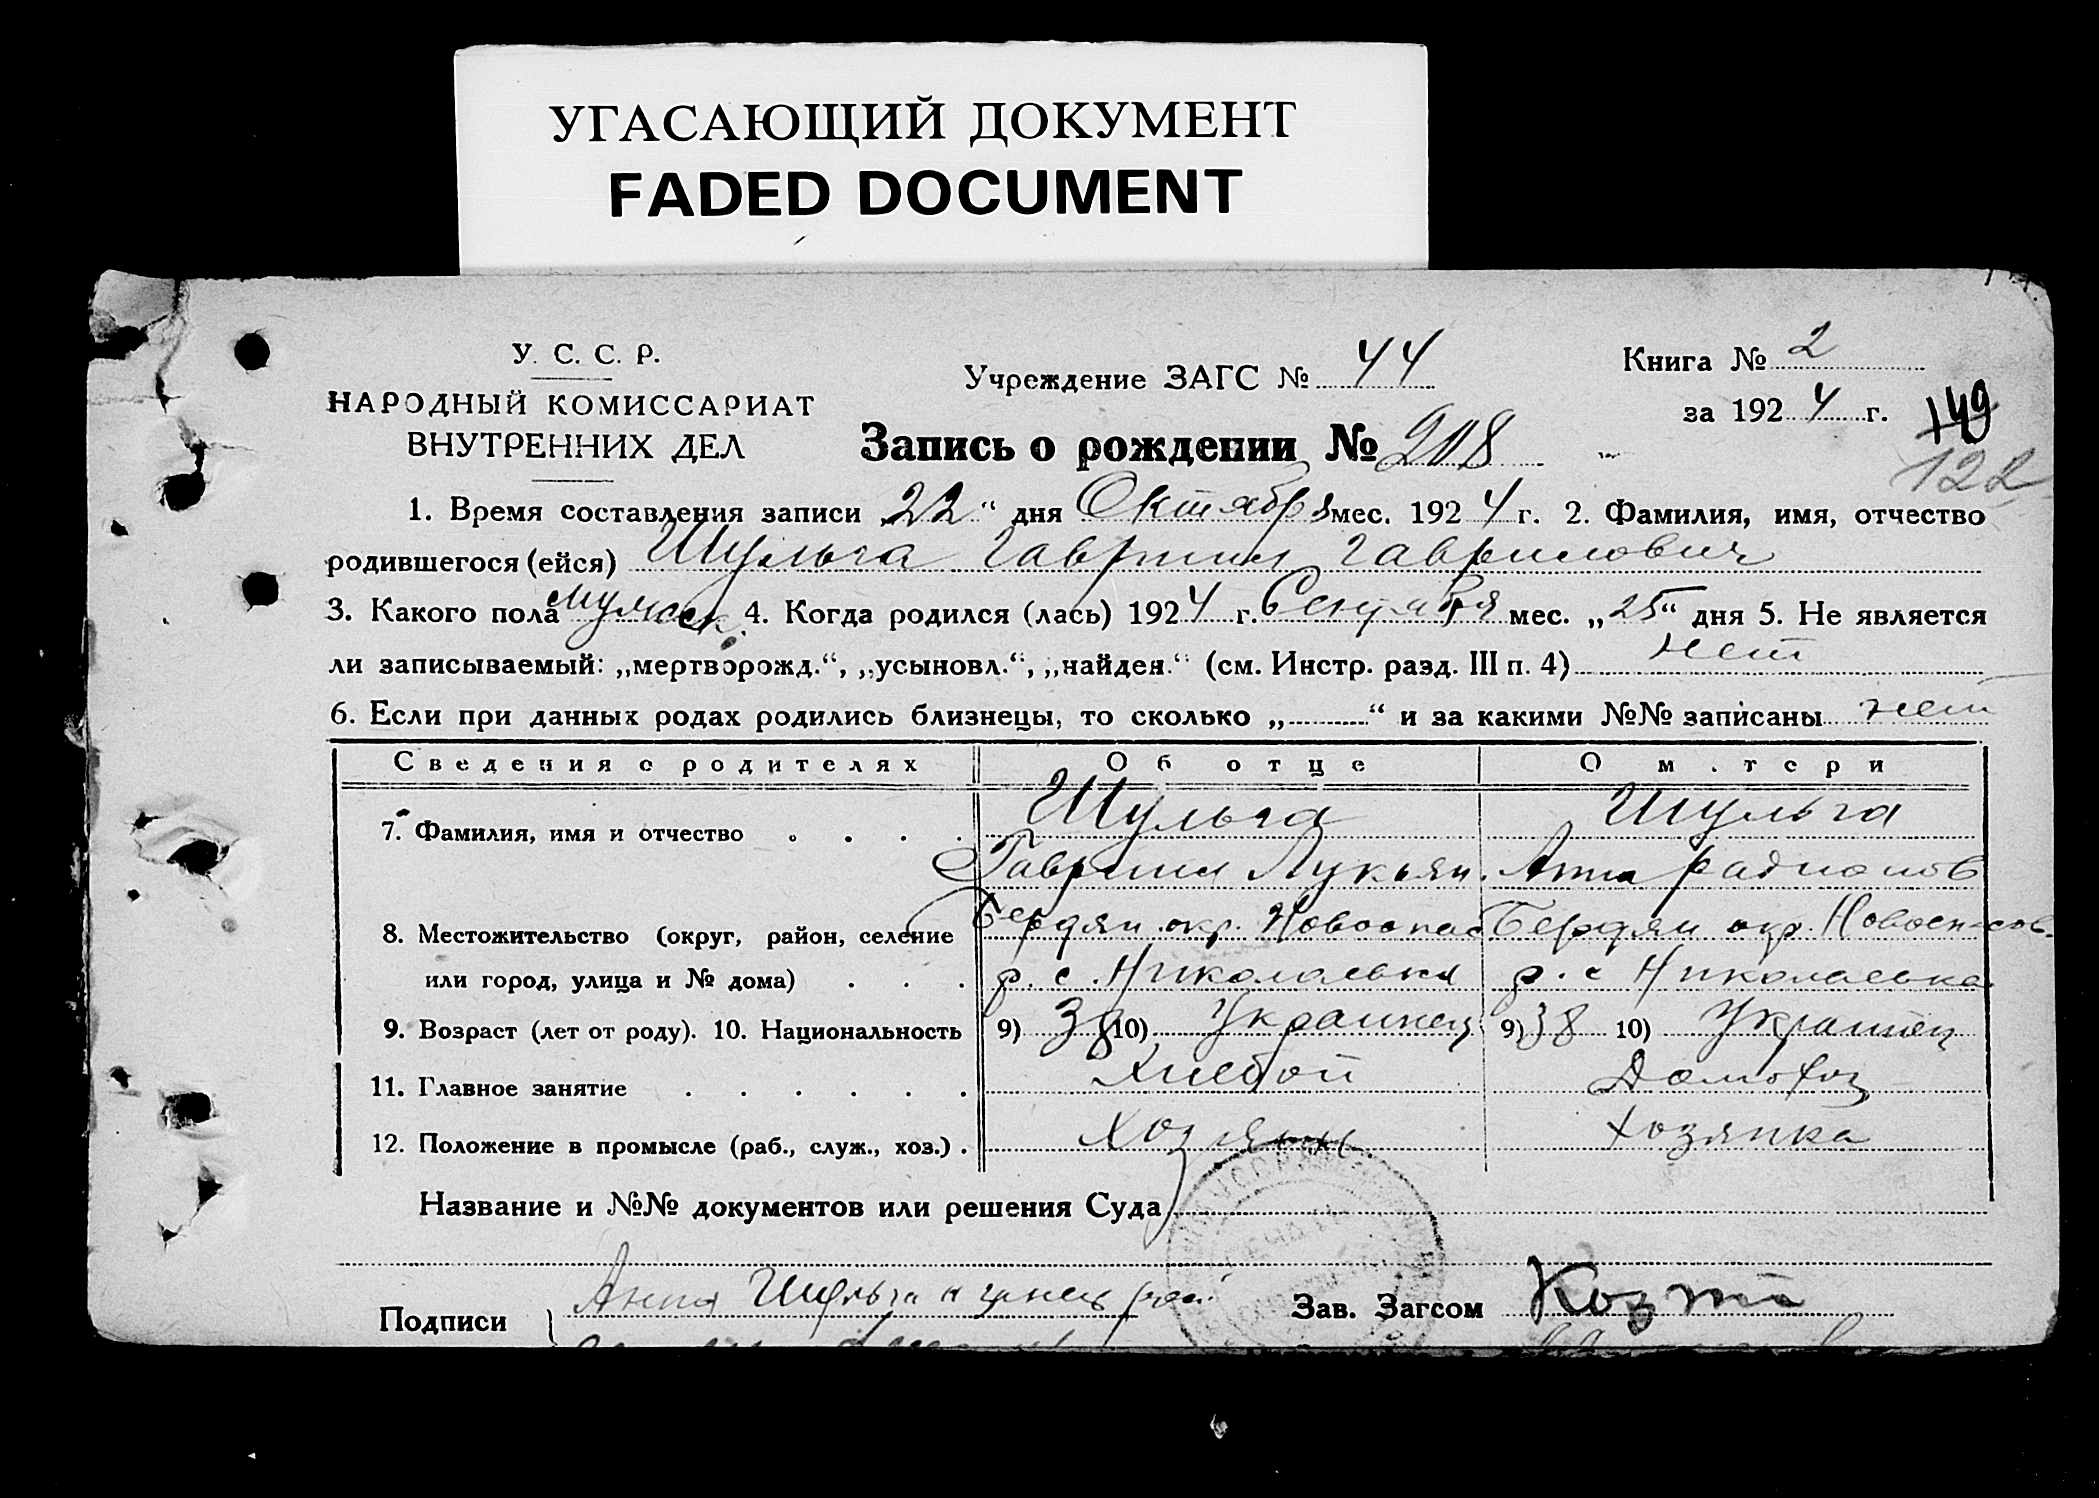 УГАСАЮЩИЙ ДОКУМЕНТ
FADED DOCUMENT
У. С. С. Р.
НАРОДНЫЙ КОМИССАРИАТ
ВНУТРЕННИХ ДЕЛ
Учреждение ЗАГС № 44
Книга № 2
за 1924 г.
149
122
Запись о рождении № 208
1. Время составления записи „22“ дня Октября мес. 1924 г. 2. Фамилия, имя, отчество
родившегося (ейся) Шульга Гавриил Гаврилович
3. Какого пола мужск. 4. Когда родился (лась) 1924 г. Сентября мес. „25“ дня 5. Не является
ли записываемый: „мертворожд.“, „усыновл.“, „найден.“ (см. Инстр. разд. III п. 4) нет
6. Если при данных родах родились близнецы, то сколько „ “ и за какими №№ записаны нет
Сведения о родителях Об отце О матери
7. Фамилия, имя и отчество Шульга Шульга
Гавриил Лукьян. Анна Радионов
8. Местожительство (округ, район, селение Бердян. окр. Новоспас Бердян окр. Новоспасов.
или город, улица и № дома) р. с. Николаевка р. с Николаевка
9. Возраст (лет от роду). 10. Национальность 9) 38 10) Украинец 9) 38 10) Украинец
11. Главное занятие Хлебоп Домохоз
12. Положение в промысле (раб., служ., хоз.) Хозяинъ хозяйка
Название и №№ документов или решения Суда
Подписи Анна Шульга Зав. Загсом